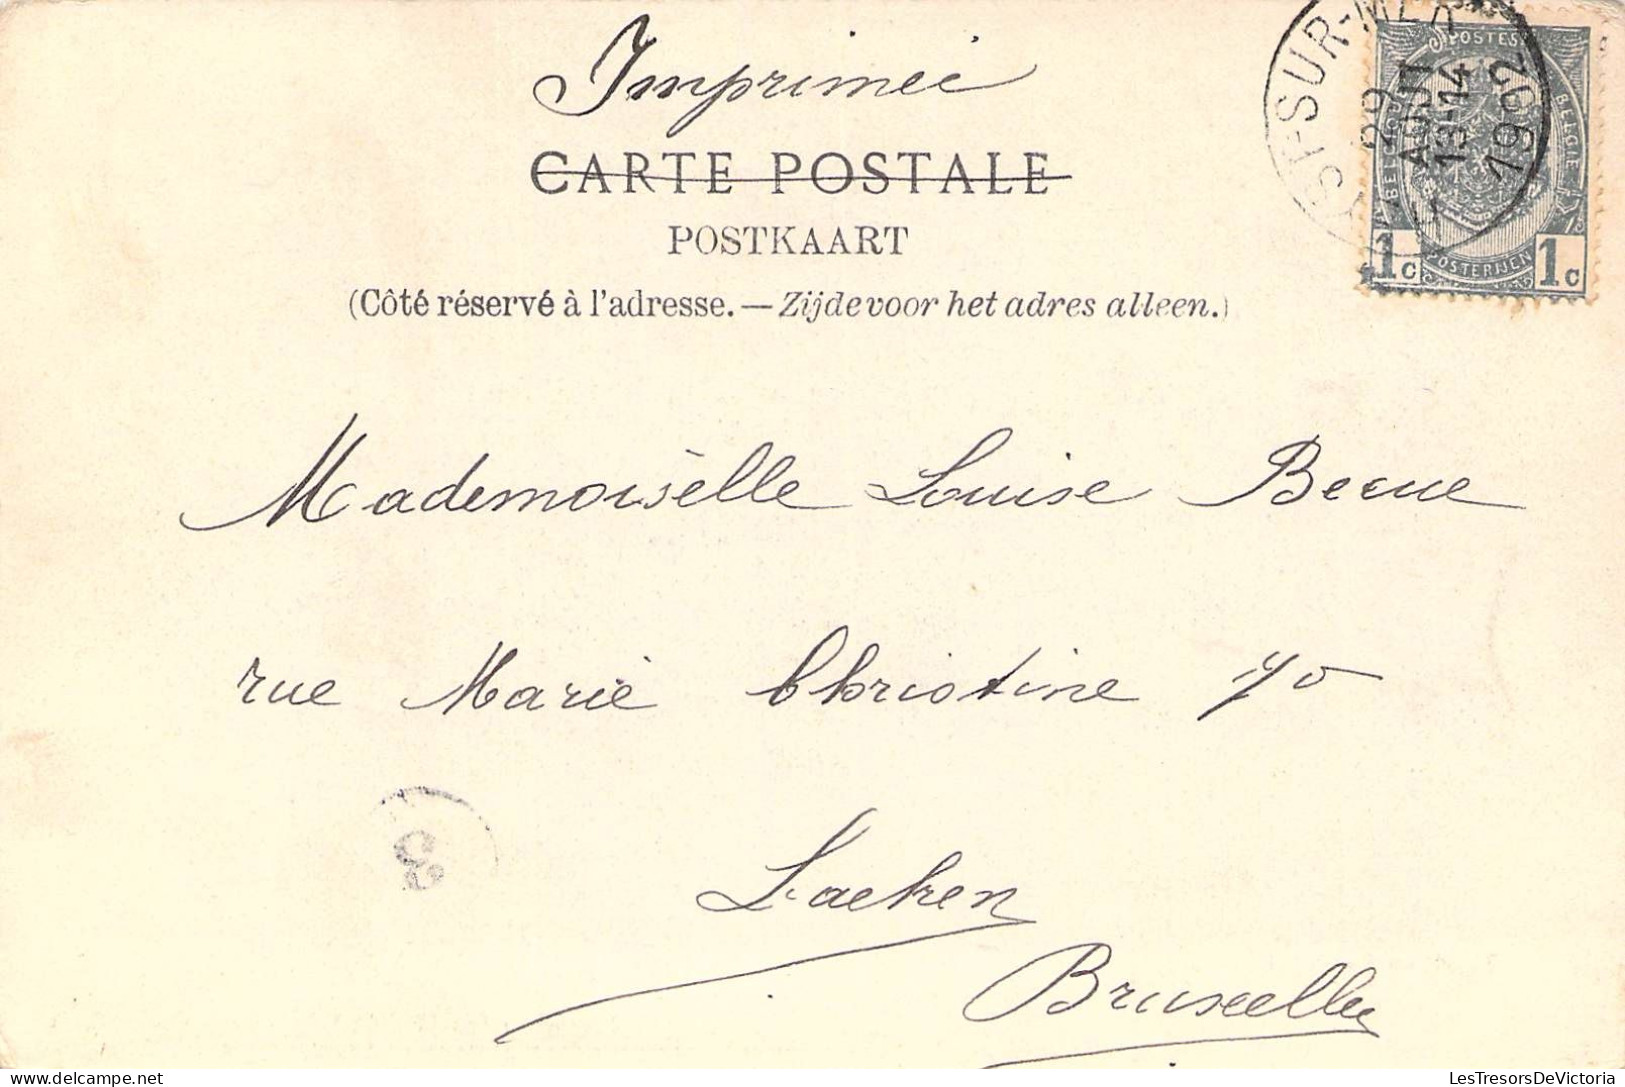 Imprimée
CARTE POSTALE
POSTKAART
(Côté réservé à l'adresse. — Zijde voor het adres alleen.)
SUR-ME
29
AOUT
13-14
1902
POSTES
BELGIQUE
BELGIE
POSTERIJEN
1c 1c
Mademoiselle Louise Becue
rue Marie Christine 70
Laeken
Bruxelles
3
LesTresorsDeVictoria